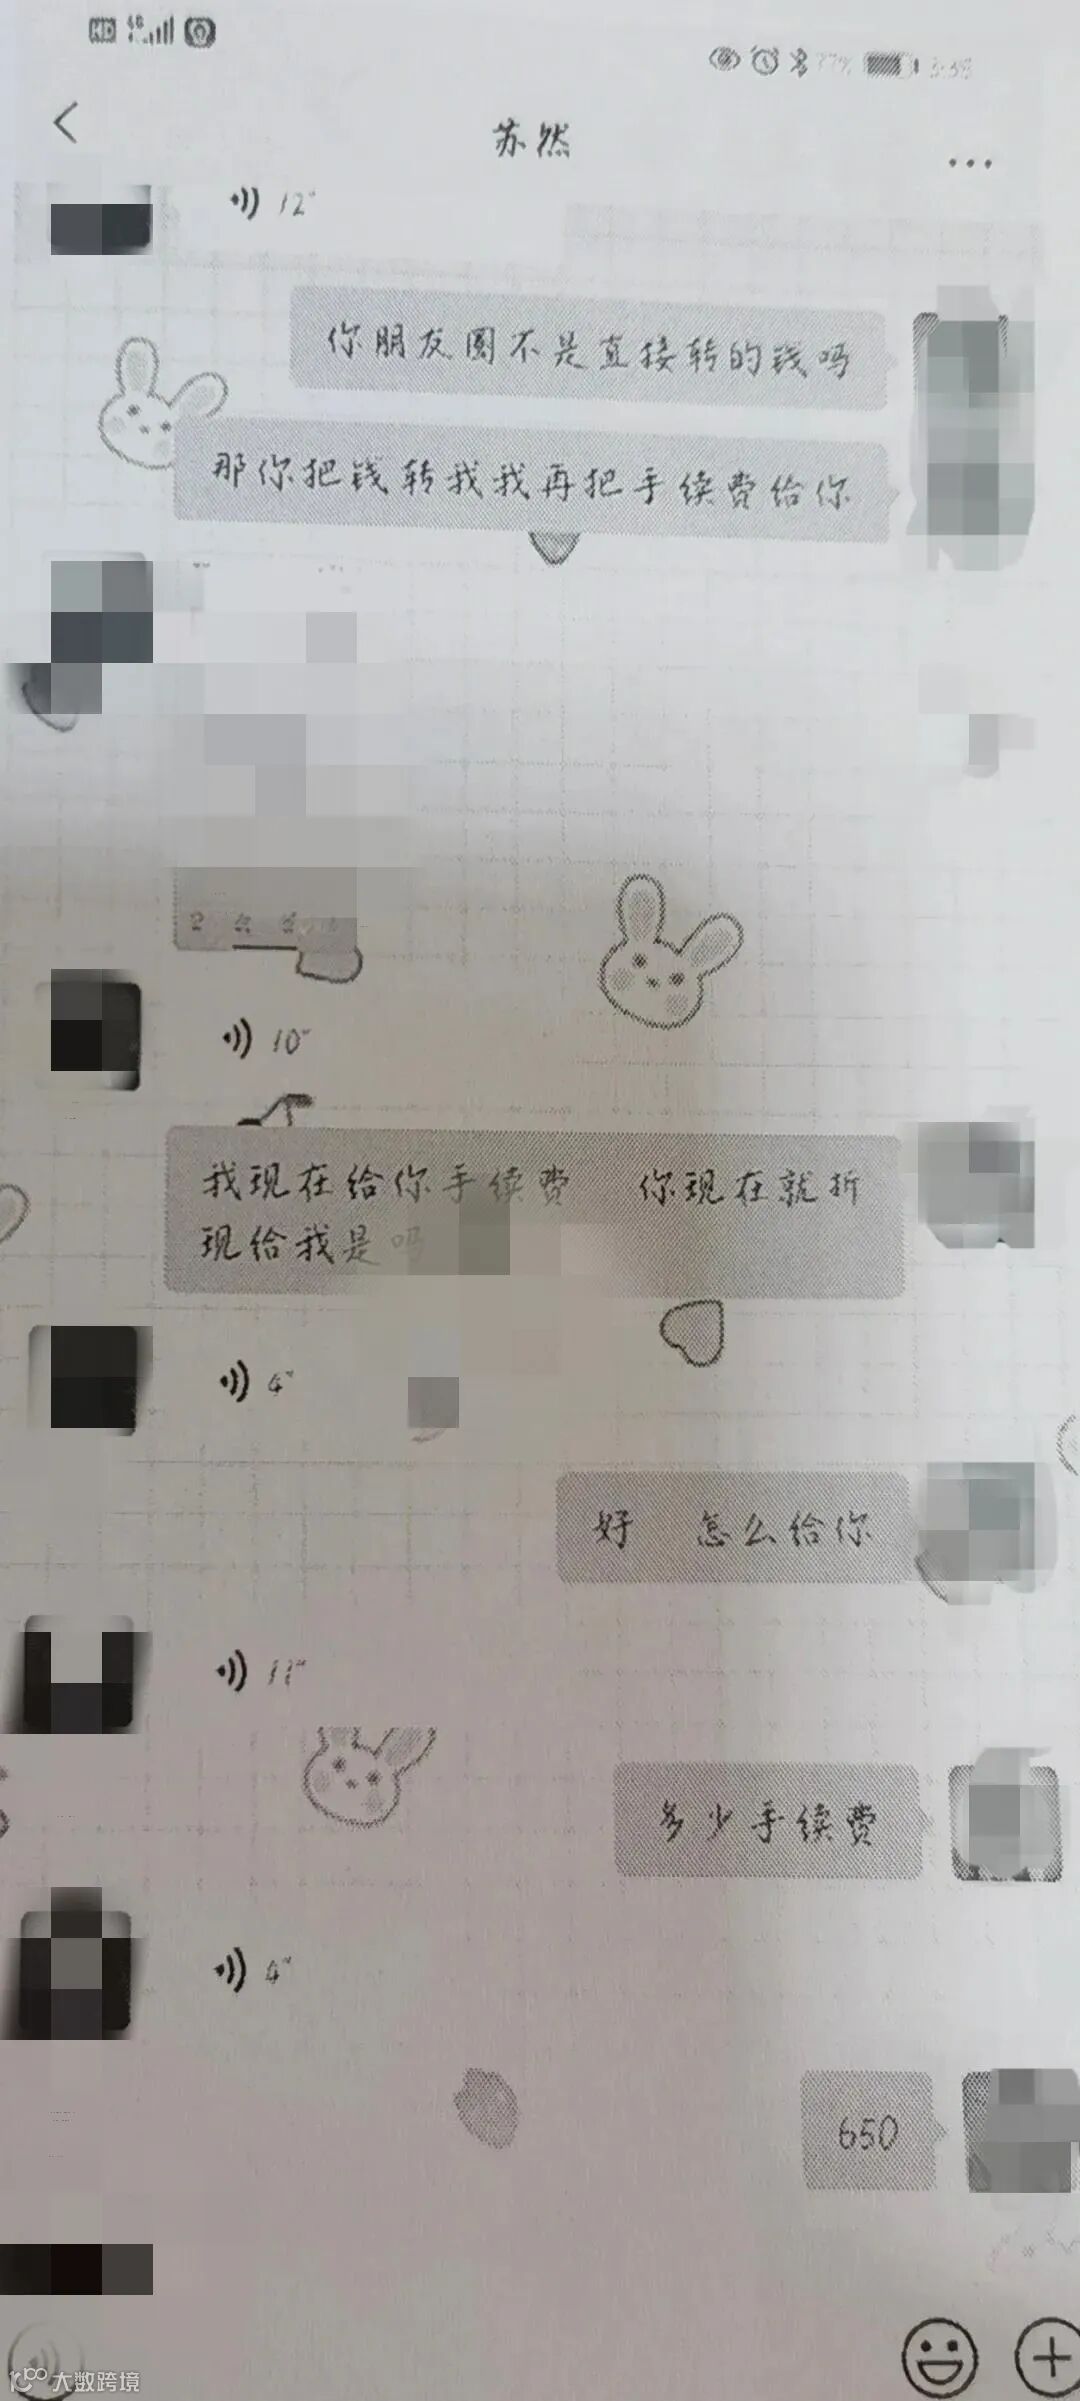 HD 4G
77% 3:38
苏然
12"
你朋友圈不是直接转的钱吗
那你把钱转我我再把手续费给你
10"
我现在给你手续费 你现在就折
现给我是吗
4"
好 怎么给你
11"
多少手续费
4"
650
大数跨境